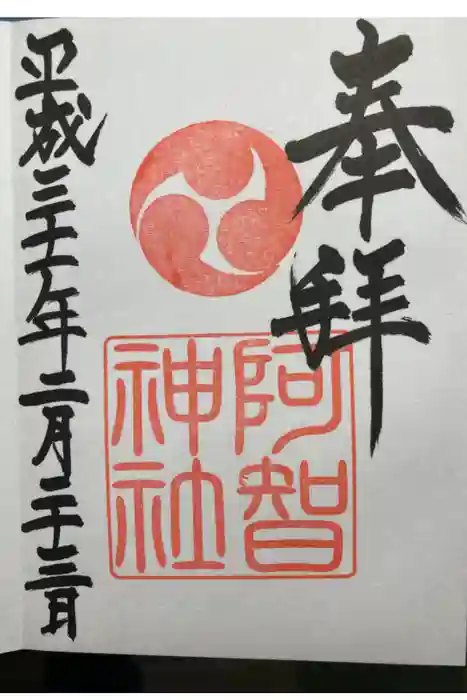 奉拝
阿智
神社
平成三十一年二月二十三日